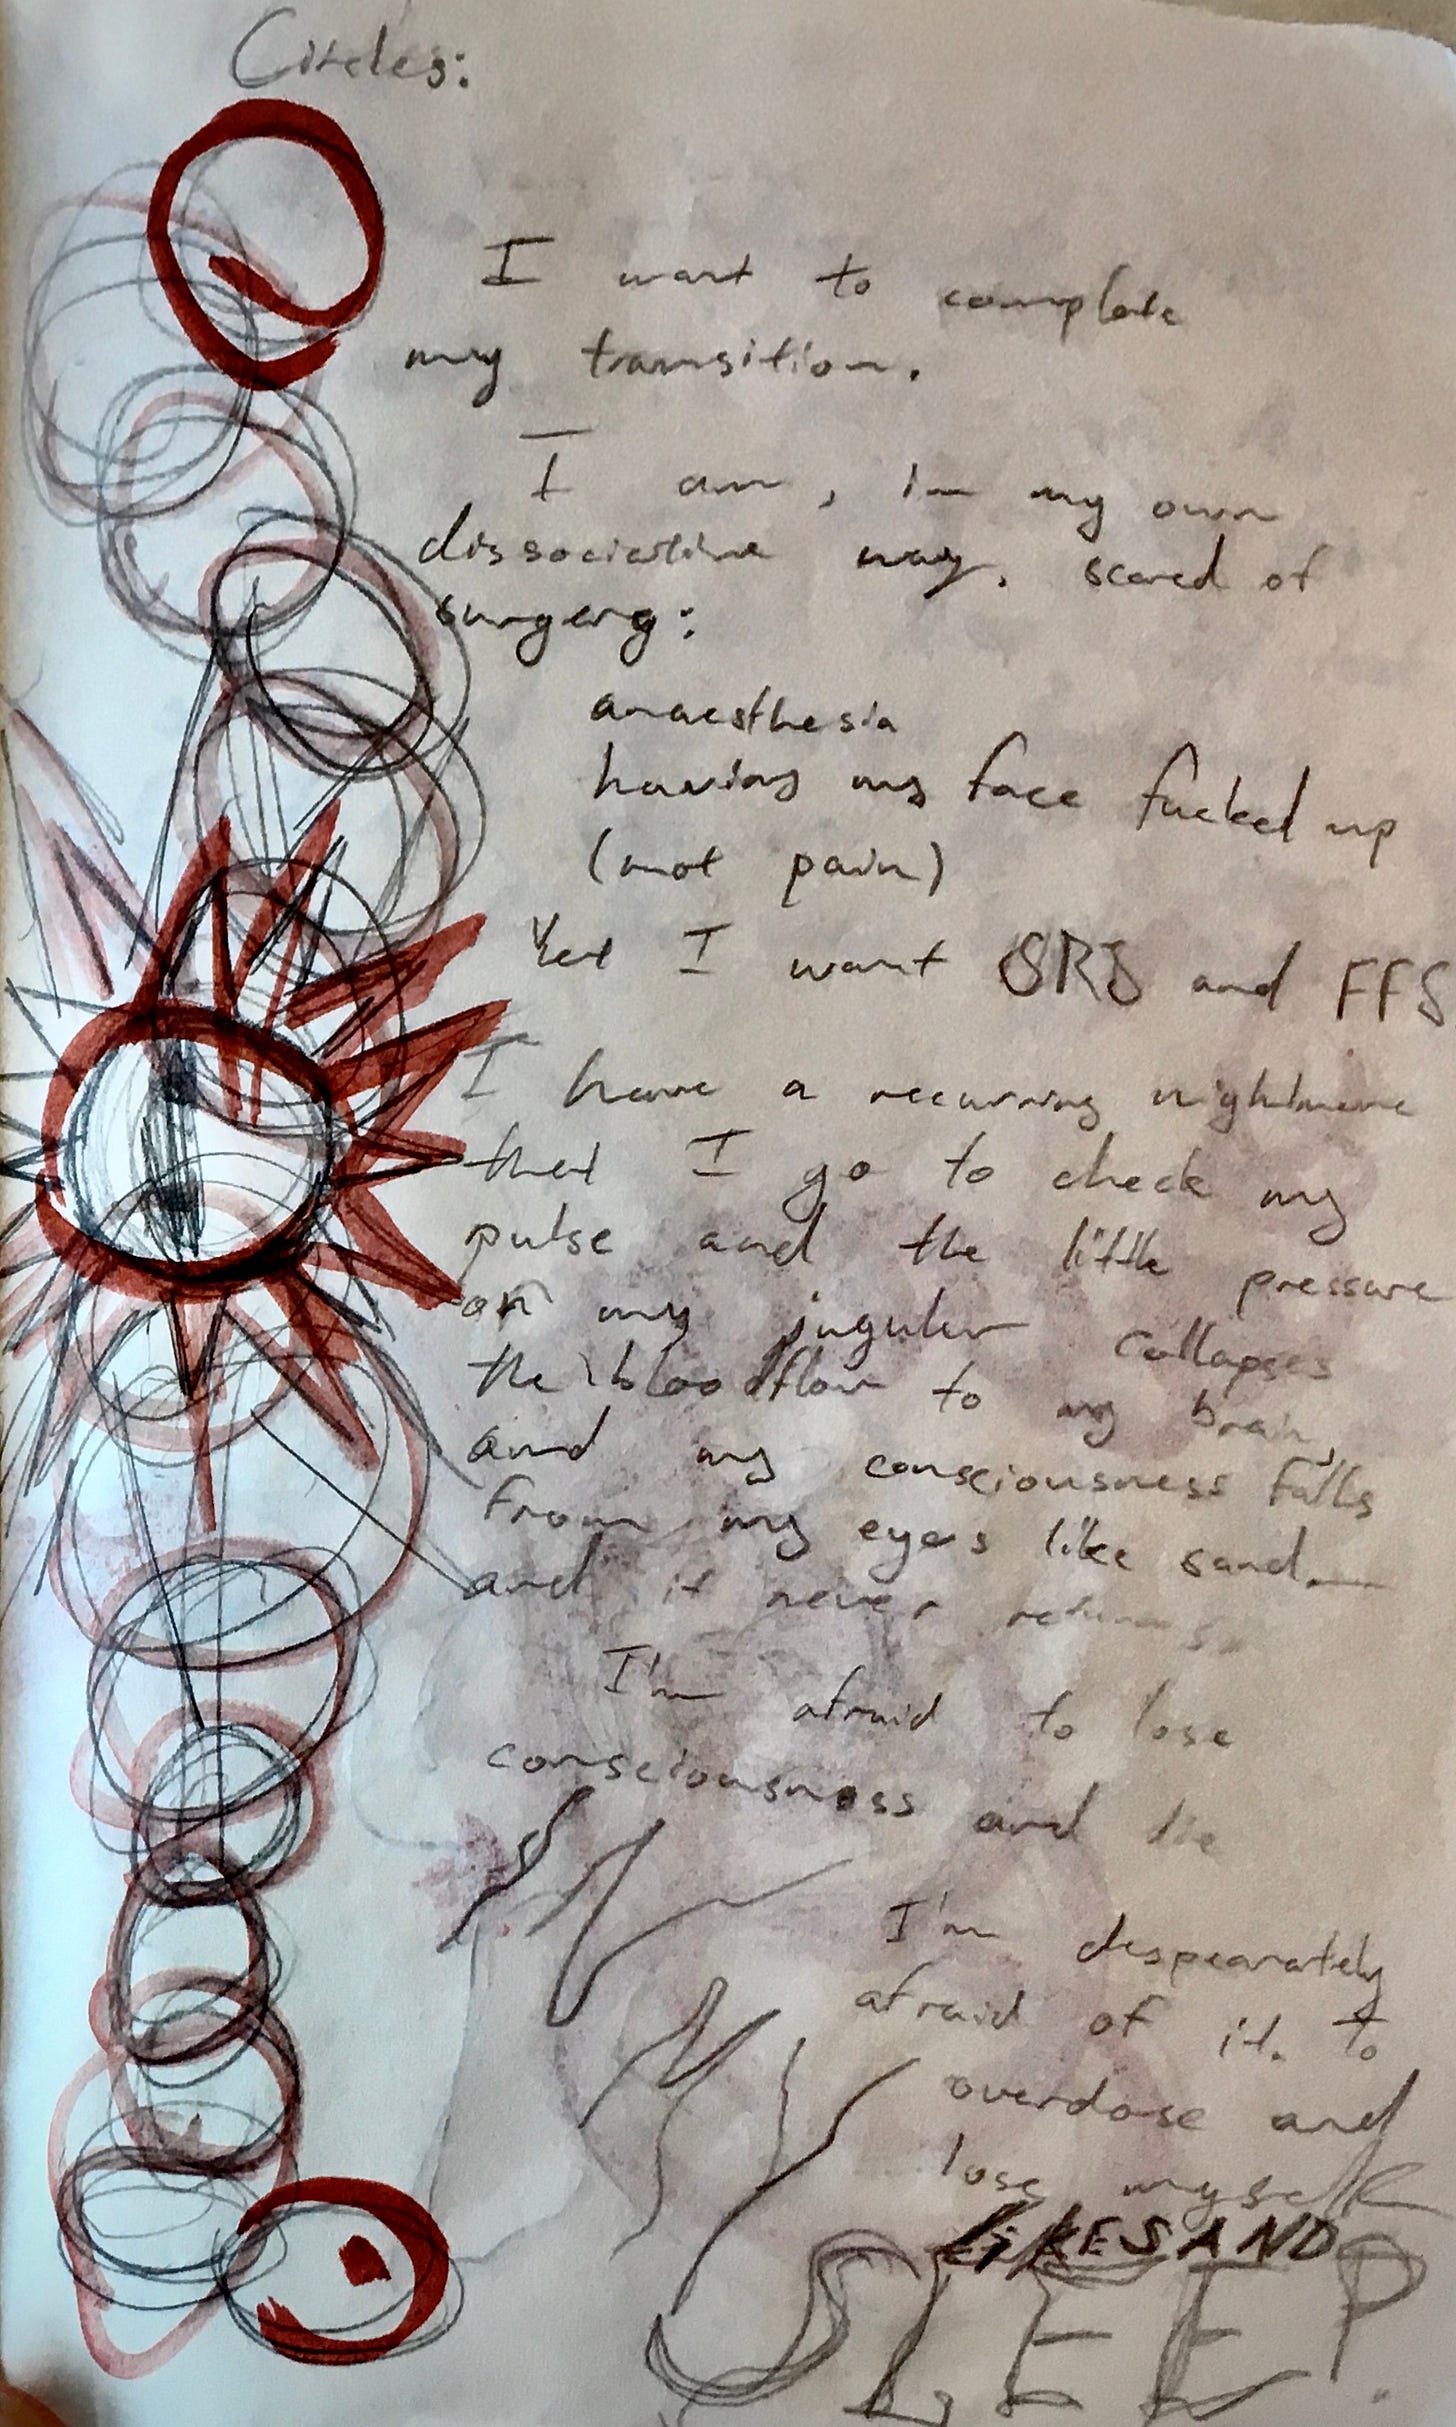 Circles:
I want to complete
my transition.
I am, in my own
dissociative way, scared of
surgery:
anaesthesia
having my face fucked up
(not pain)
Yet I want SRS and FFS
I have a recurring nightmare
that I go to check my
pulse and the little pressure
on my jugular collapses
the bloodflow to my brain,
and my consciousness falls
from my eyes like sand.
and it never returns.
I'm afraid to lose
consciousness and die
I'm despearately
afraid of it. to
overdose and
lose myself
LIKE SAND
SLEEP